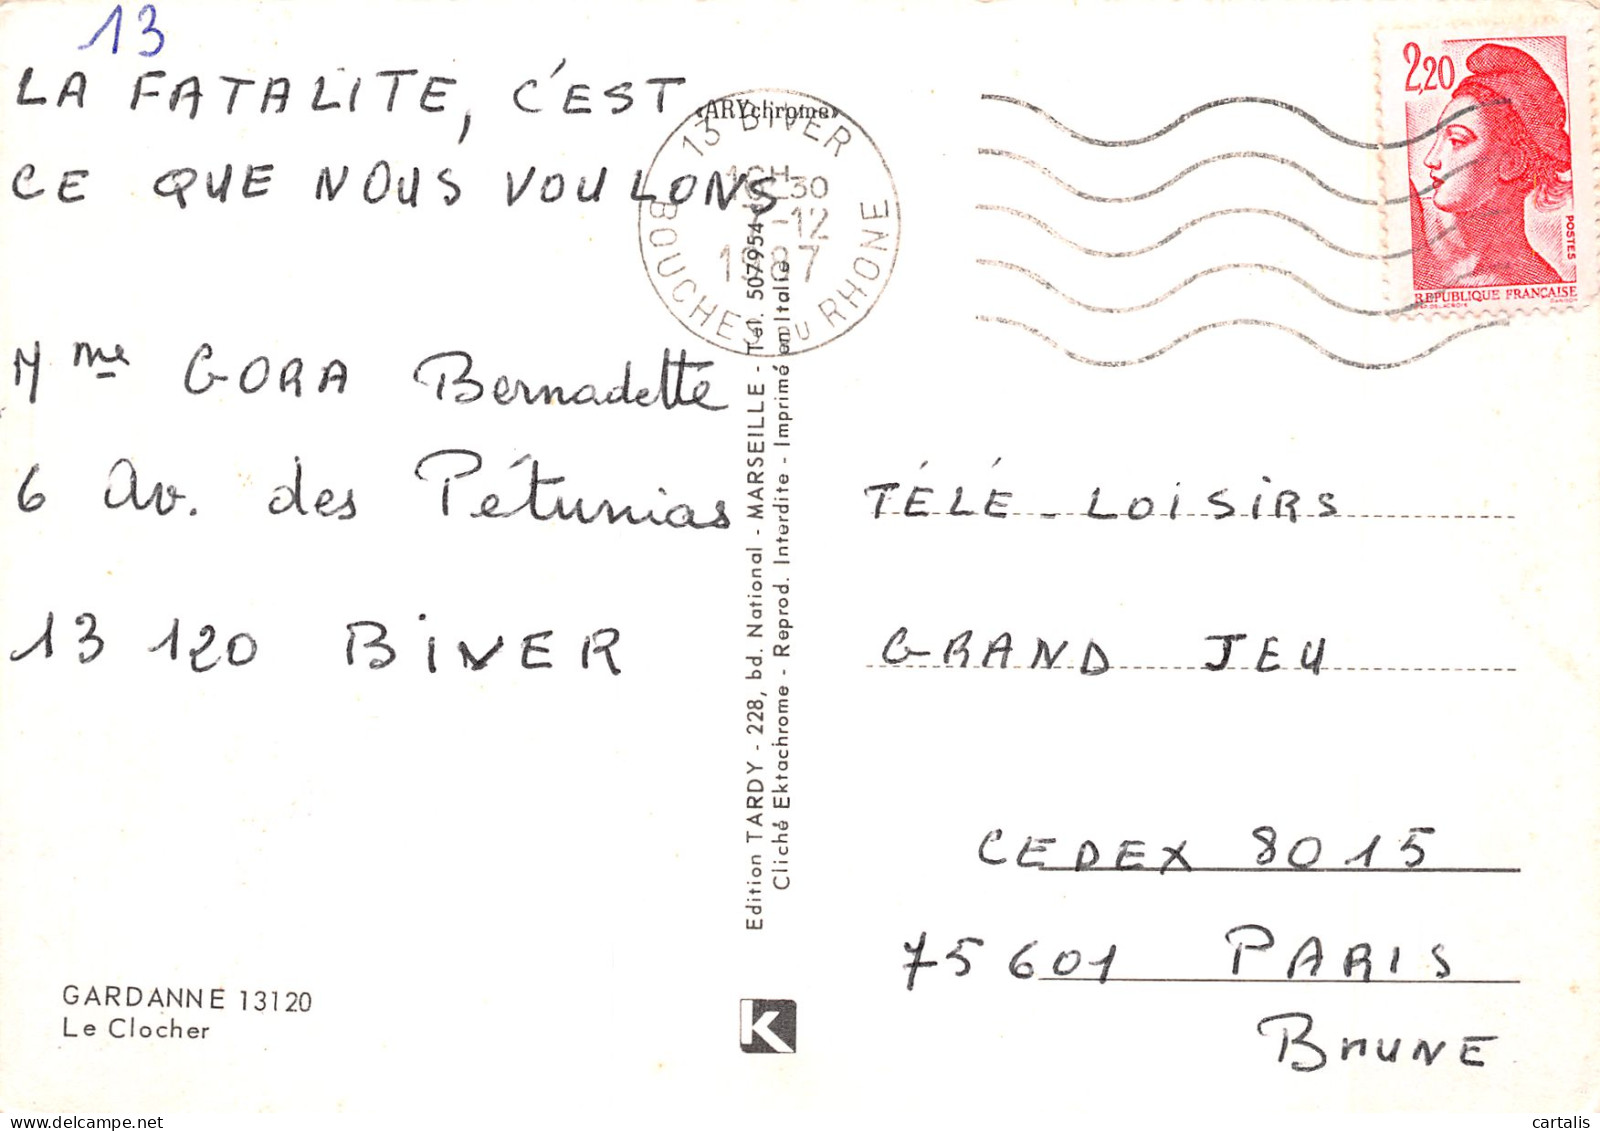 13
LA FATALITE, C'EST
CE QUE NOUS VOULONS
Mme GORA Bernadette
6 Av. des Pétunias
13 120 BIVER
GARDANNE 13120
Le Clocher
«ARYchrome»
13 BIVER
30
-12
1987
BOUCHES DU RHONE
Edition TARDY - 228, bd. National - MARSEILLE - Tél. 507954
Cliché Ektachrome - Reprod. Interdite - Imprimé en Italie
K
2,20
POSTES
REPUBLIQUE FRANÇAISE
TÉLÉ-LOISIRS
GRAND JEU
CEDEX 8015
75601 PARIS
BRUNE
cartalis